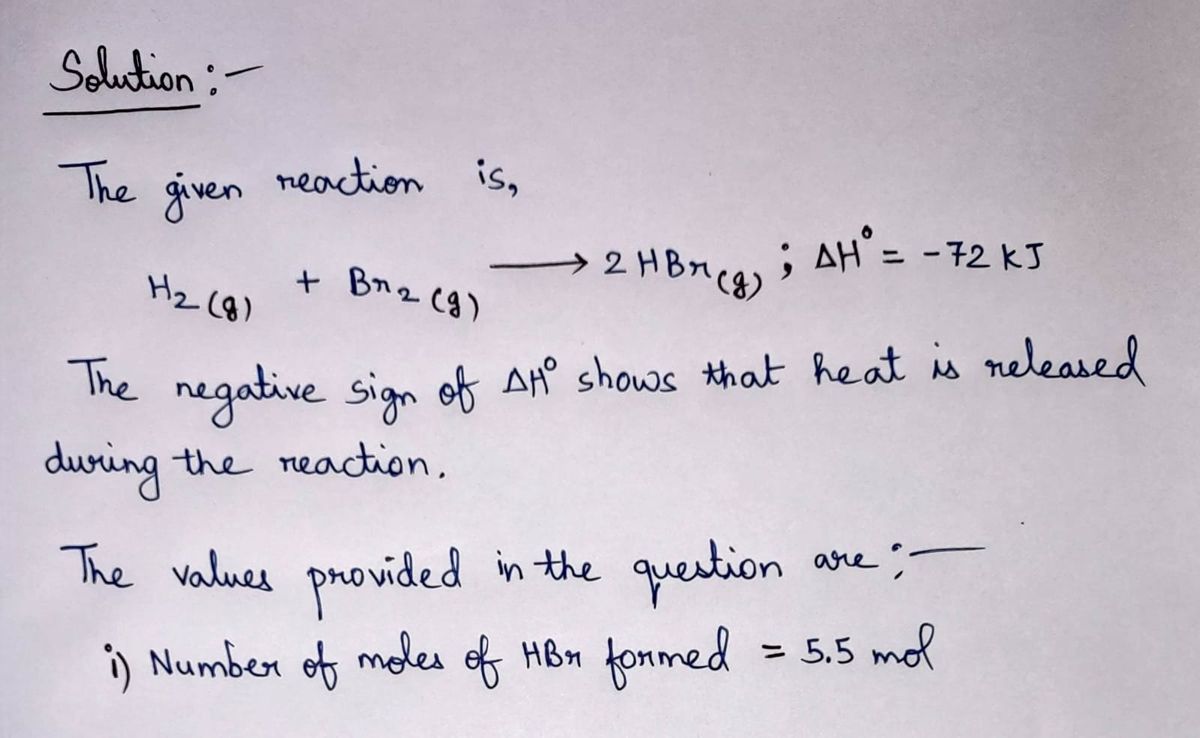 Solution :-
The given reaction is,
H₂ (g) + Br₂ (g) ⟶ 2 HBr (g) ; ΔH° = -72 kJ
The negative sign of ΔH° shows that heat is released
during the reaction.
The values provided in the question are ;-
i) Number of moles of HBr formed = 5.5 mol